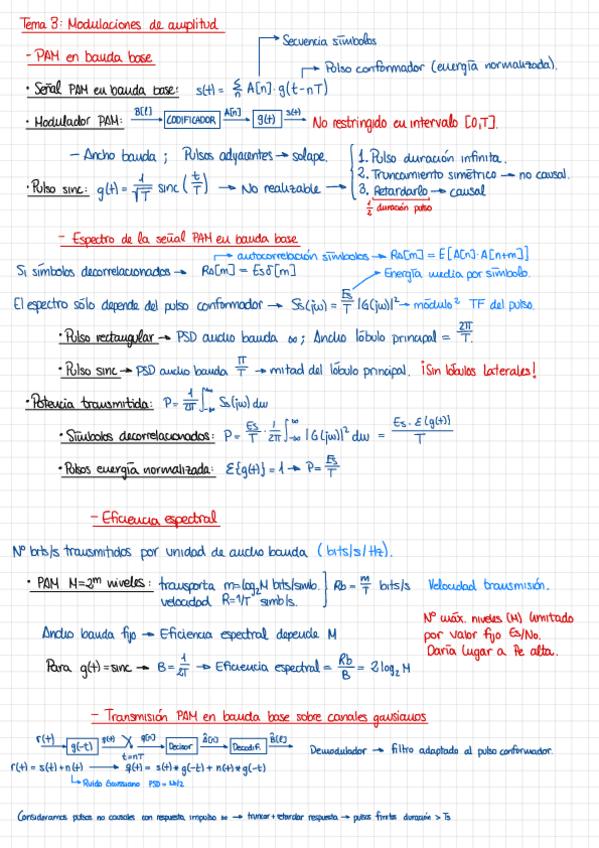 Tema 3: Modulaciones de amplitud
Secuencia símbolos
- PAM en banda base
Pulso conformador (energía normalizada).
· Señal PAM en banda base: s(t) = Σn A[n]·g(t-nT)
· Modulador PAM: B[ℓ] → CODIFICADOR → A[n] → g(t) → s(t) No restringido en intervalo [0,T].
- Ancho banda ; Pulsos adyacentes → solape.
1. Pulso duración infinita.
2. Truncamiento simétrico → no causal.
· Pulso sinc: g(t) = 1/√T sinc (t/T) → No realizable → 3. Retardarlo → causal
1/2 duración pulso
- Espectro de la señal PAM en banda base
autocorrelación símbolos → RA[m] = E[A[n]·A[n+m]]
Si símbolos decorrelacionados → RA[m] = Es δ[m]
Energía media por símbolo.
El espectro sólo depende del pulso conformador → Ss(jω) = Es/T |G(jω)|² → módulo² TF del pulso.
· Pulso rectangular → PSD ancho banda ∞ ; Ancho lóbulo principal = 2π/T.
· Pulso sinc → PSD ancho banda π/T → mitad del lóbulo principal. ¡Sin lóbulos laterales!
· Potencia transmitida: P = 1/2π ∫-∞^∞ Ss(jω) dω
· Símbolos decorrelacionados: P = Es/T · 1/2π ∫-∞^∞ |G(jω)|² dω = Es · ε{g(t)}/T
· Pulsos energía normalizada: ε{g(t)} = 1 → P = Es/T
- Eficiencia espectral
Nº bits/s transmitidos por unidad de ancho banda (bits/s/Hz).
· PAM M=2^m niveles: transporta m=log₂M bits/simbo. } Rb = m/T bits/s Velocidad transmisión.
velocidad R=1/T simb/s.
Nº máx. niveles (M) limitado
por valor fijo Es/No.
Daría lugar a Pe alta.
Ancho banda fijo → Eficiencia espectral depende M
Para g(t) = sinc → B = 1/2T → Eficiencia espectral = Rb/B = 2 log₂ M
- Transmisión PAM en banda base sobre canales gausianos
r(t) → g(-t) → q(t) → q[n] → Decisor → Â[n] → Decodif. → B̂[ℓ] Demodulador → filtro adaptado al pulso conformador.
t=nT
r(t) = s(t) + n(t) → q(t) = s(t) * g(-t) + n(t) * g(-t)
Ruido Gaussiano PSD = No/2
Consideramos pulsos no causales con respuesta impulso ∞ → truncar + retardar respuesta → pulsos finitos duración > Ts